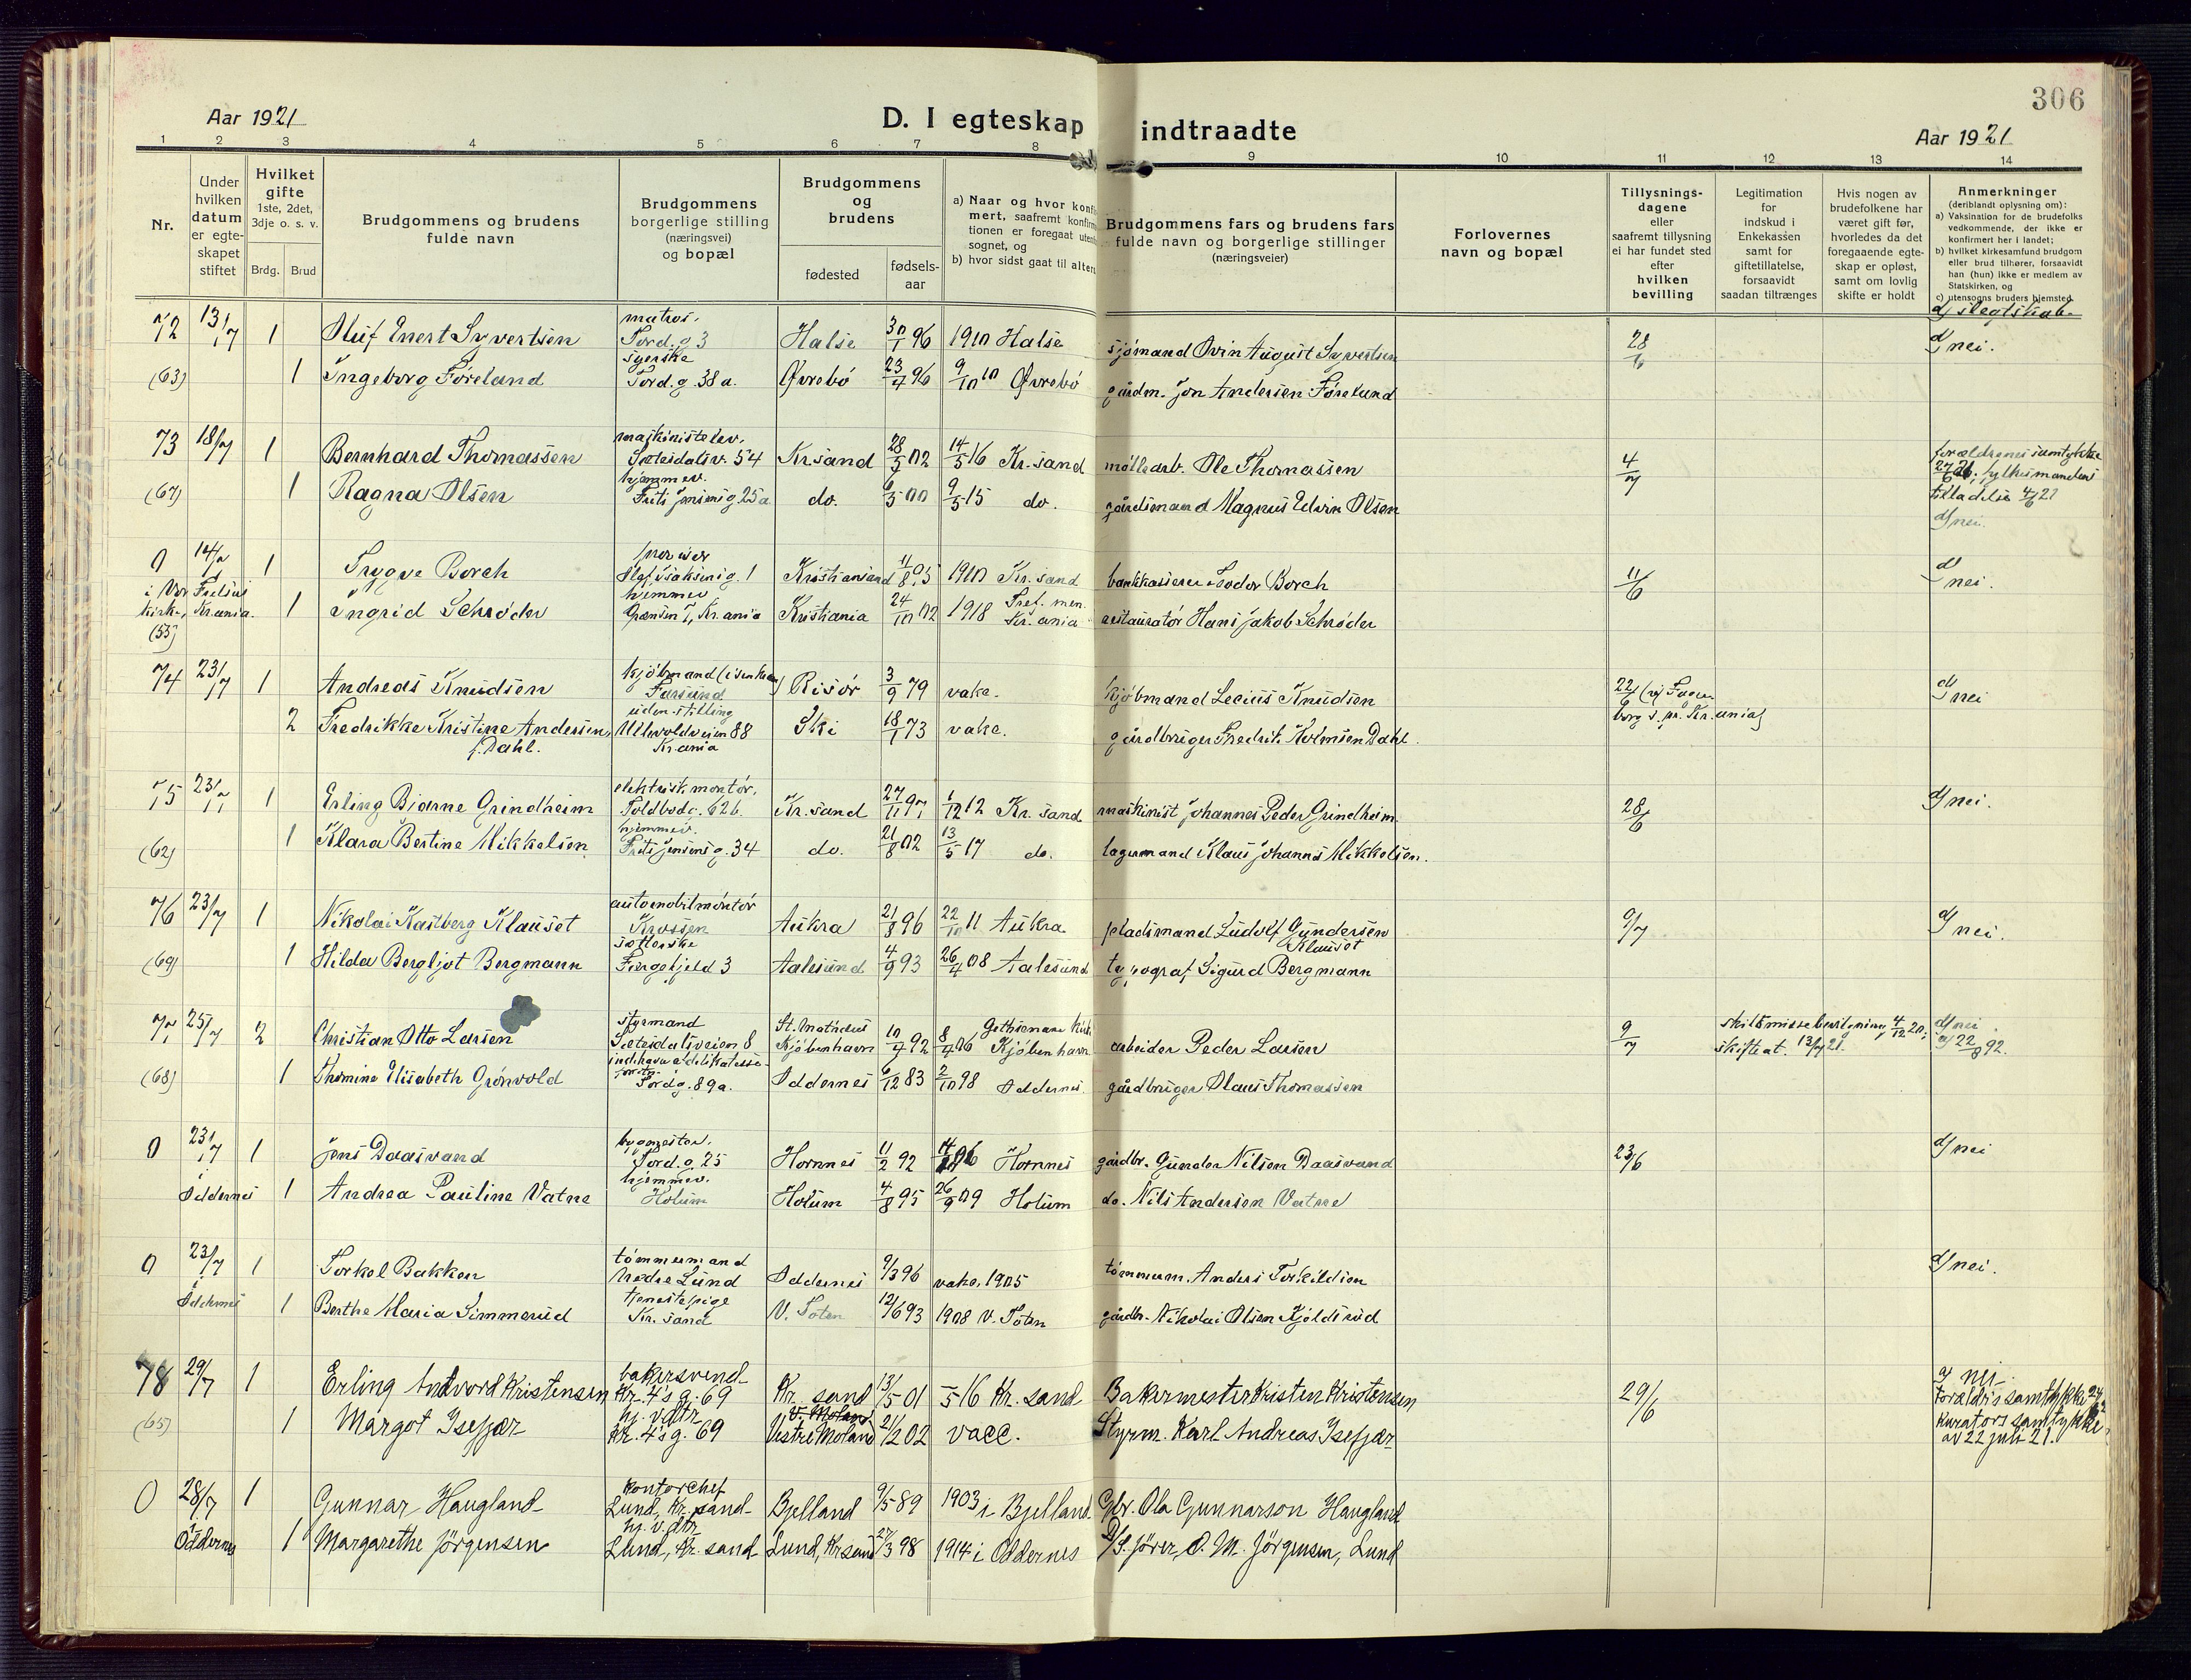 306
Aar 1921
D. I egteskap indtraadte
Aar 1921
1 2 3 4 5 6 7 8 9 10 11 12 13 14
Nr.
Under hvilken datum er egte-skapet stiftet
Hvilket gifte
1ste, 2det, 3dje o. s. v.
Brdg. Brud
Brudgommens og brudens fulde navn
Brudgommens borgerlige stilling (næringsvei) og bopæl
Brudgommens og brudens
fødested
fødsels-aar
a) Naar og hvor konfir
mert, saafremt konfirm
tionen er foregaat utenfo
sognet, og
b) hvor sidst gaat til alters
Brudgommens fars og brudens fars
fulde navn og borgerlige stillinger
(næringsveier)
Forlovernes
navn og bopæl
Tillysnings-
dagene
eller
saafremt tillysning
ei har fundet sted
efter
hvilken
bevilling
Legitimation
for
indskud i
Enkekassen
samt for
giftetillatelse,
forsaavidt
saadan tiltrænges
Hvis nogen av
brudefolkene har
været gift før,
hvorledes da det
foregaaende egte-
skap er opløst,
samt om lovlig
skifte er holdt
Anmerkninger
(deriblandt oplysning om):
a) Vaksination for de brudefolks
vedkommende, der ikke er
konfirmert her i landet;
b) hvilket kirkesamfund brudgom
eller brud tilhører, forsaavidt
han (hun) ikke er medlem av
Statskirken, og
c) utensogns bruders hjemsted.
d) slegtskab.
72 13/7 1 Oluf Enert Syvertsen matros. Tord.g 3 Halse 30/1 96 1910 Halse sjømand Ovin August Syvertsen 28/6 d) nei.
(63) 1 Ingeborg Føreland syerske Tord.g. 38a. Øvrebö 23/4 96 9/10 10 Øvrebö gårdm. Jon Andersen Føreland
73 18/7 1 Bernhard Thomassen maskinistelev. Sæteidalsv. 54 Krsand 28/5 02 14/5 16 Kr.sand møllearb. Ole Thomassen 4/7 forældrenes samtykke 27/6 21, fylkesmandens tilladelse 4/6 21
(67) 1 Ragna Olsen hjemmev. Frits Jensens g. 25a do. 6/5 00 9/5 15 do. gårdsmand Magnus Edvin Olsen d) nei.
0 14/7 1 Trygve Borch Kristiansand 11/8 05 1910 Kr.sand bankkasserer Teodor Borch 11/6 d) nei.
i Vor Frelsers kirke, Kr.ania. 1 Ingrid Schrøder hjemmev Grænsen 7, Kr.ania Kristiania 24/10 02 1918 Tref. men. Kr.ania restauratør Hans Jakob Schrøder
(53)
74 23/7 1 Andreas Knudsen kjøbmand (isenkram) Farsund Risør 3/9 79 vake. kjøbmand Lecius Knudsen 22/6 (vj Fagerborg s.pr. Kr.ania) d) nei
2 Fredrikke Kristine Andersen, f. Dahl. uden stilling Ullevoldveien 88 Kr.ania Ski 18/1 73 vake. gårdbruger Fredrik Holmsen Dahl.
75 23/7 1 Erling Bjarne Grindheim elektrisk montør. Toldbodg. 62b. Kr.sand 27/11 97 1/12 12 Kr.sand maskinist Johannes Peder Grindheim 28/6 d) nei.
(62) 1 Klara Bertine Mikkelsen hjemmev. Frits Jensens g. 34 do. 21/8 02 13/5 17 do. lagermand Klaus Johannes Mikkelsen.
76 23/7 1 Nikolai Kastberg Klauset automobilmontør Krossen Aukra 21/8 96 22/10 11 Aukra pladsmand Ludolf Gundersen Klauset 9/7 d) nei.
(69) 1 Hilda Bergljot Bergmann Færgefjeld 3 Aalesund 4/9 93 26/4 08 Aalesund typograf Sigurd Bergmann
77 25/7 2 Christian Otto Larsen styrmand Sæteidalsveien 8 St. Mathæus Kjøbenhavn 10/4 92 8/4 06 Gethsemane Kirk. Kjøbenhavn arbeider Peder Larsen 9/7 skilsmissebevilgning 4/12 20; skifteat. 13/7 21. d) nei. a) 22/8 92.
(68) 1 Thomine Elisabeth Grønvold indehaver af delikatesse-forretn. Tord.g. 89a. Oddernes 6/12 83 2/10 98 Oddernes. gårdbruger Olaus Thomassen
0 23/7 1 Jens Daasvand bygmester. Tord.g. 25 Hornnes 11/2 92 06 Hornnes gårdbr. Gunder Nilsen Daasvand 23/6 d) nei
i Oddernes 1 Andrea Pauline Vatne hjemmev. Holum Holum 4/8 95 26/9 09 Holum do. Nils Andersen Vatne
0 23/7 1 Torkel Bakken tømmermand Nedre Lund Oddernes 9/3 96 vake. 1905 tømmerm. Anders Torkildsen d) nei.
i Oddernes 1 Berthe Maria Simmerud tjenestepige Kr.sand V. Toten 12/6 93 1908 V. Toten gårdbr. Nikolai Olsen Kjøldsrud
78 29/7 1 Erling Andvord Kristensen bakersvend Kr. 4's g. 69 Kr. sand 13/5 01 -5 16 Kr. sand Bakermester Kristen Kristensen 29/6 d) nei. Foraldres samtykke
(65) 1 Margot Isefjær hj. v. dtr Kr. 4's g. 69 V. Moland Vestre Moland 21/2 02 vacc. Styrm. Karl Andreas Isefjær kurators samtykke av 22 juli 21.
0 28/7 1 Gunnar Haugland Kontorchef Lund, Kr.sand Bjelland 9/5 89 1903 i Bjelland Gbr. Ola Gunnarson Haugland
i Oddernes 1 Margarethe Jörgensen hj. v. dtr Lund, Kr.sand Lund, Krsand 27/3 98 1914 i Oddernes D/S. förer, O. M. Jörgensen, Lund